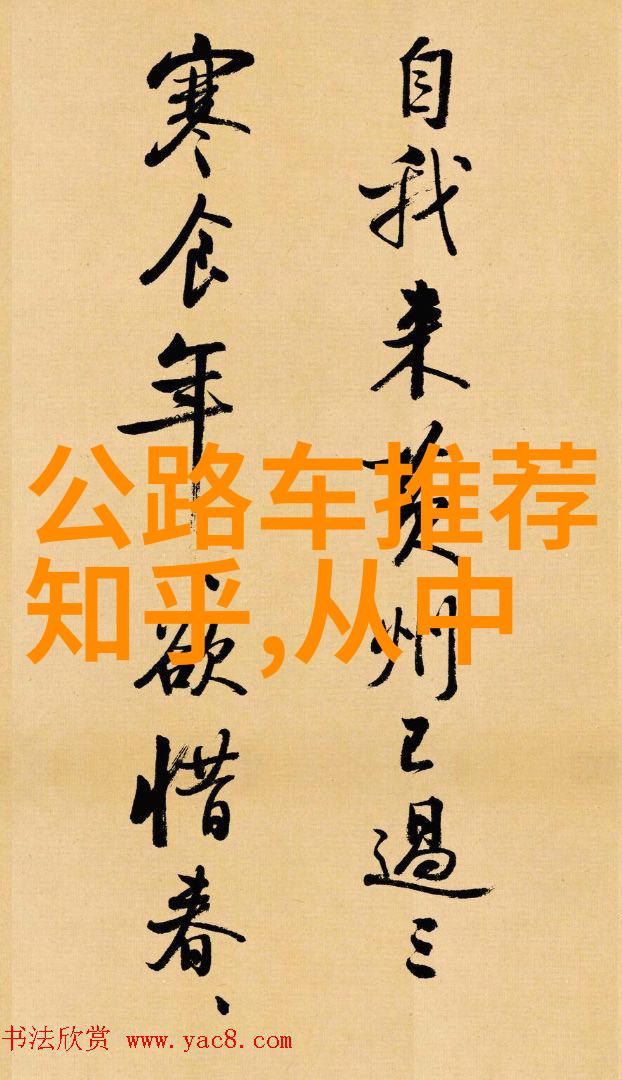 自我来黄州已過三
寒食年年欲惜春、
公路车推荐
知乎,从中
书法欣赏 www.yac8.com